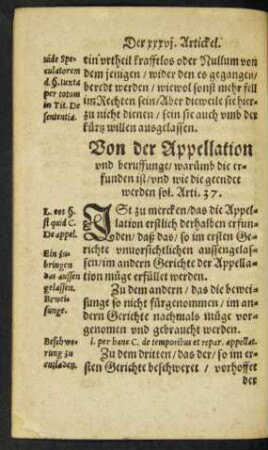 Der xxxvj. Artickel.
vide Spe-
culatorem
d. H. iuxta
per totum
in Tit. De
sententia.
ein vrtheil krafftlos oder Nullum von
dem jenigen / wider den es gegangen /
beredt werden / wiewol sonst mehr fell
im Rechten sein / Aber dieweile sie hier-
zu nicht dienen / sein sie auch vmb der
kürtz willen ausgelassen.
Von der Appellation
vnd beruffunge / warümb die er-
funden ist / vnd wie die geendet
werden sol. Arti. 37.
L. tot H.
si quid C.
De appel.
Ein zu-
bringen
das aussen
gelassen.
Bewei-
sunge.
Beschwe-
rung zu
ausladen.
ISt zu mercken / das die Appel-
lation erstlich derhalben erfun-
den / daß das / so im ersten Ge-
richte vnuorsichtlichen aussengelas-
sen / im andern Gerichte der Appella-
tion müge erfüllet werden.
Zu dem andern / das die bewei-
sunge so nicht fürgenommen / im an-
dern Gerichte nachmals müge vor-
genomen vnd gebraucht werden.
l. per hanc C. de temporibus et repar. appellat.
Zu dem dritten / das der / so im er-
sten Gerichte beschweret / vorhoffet
der